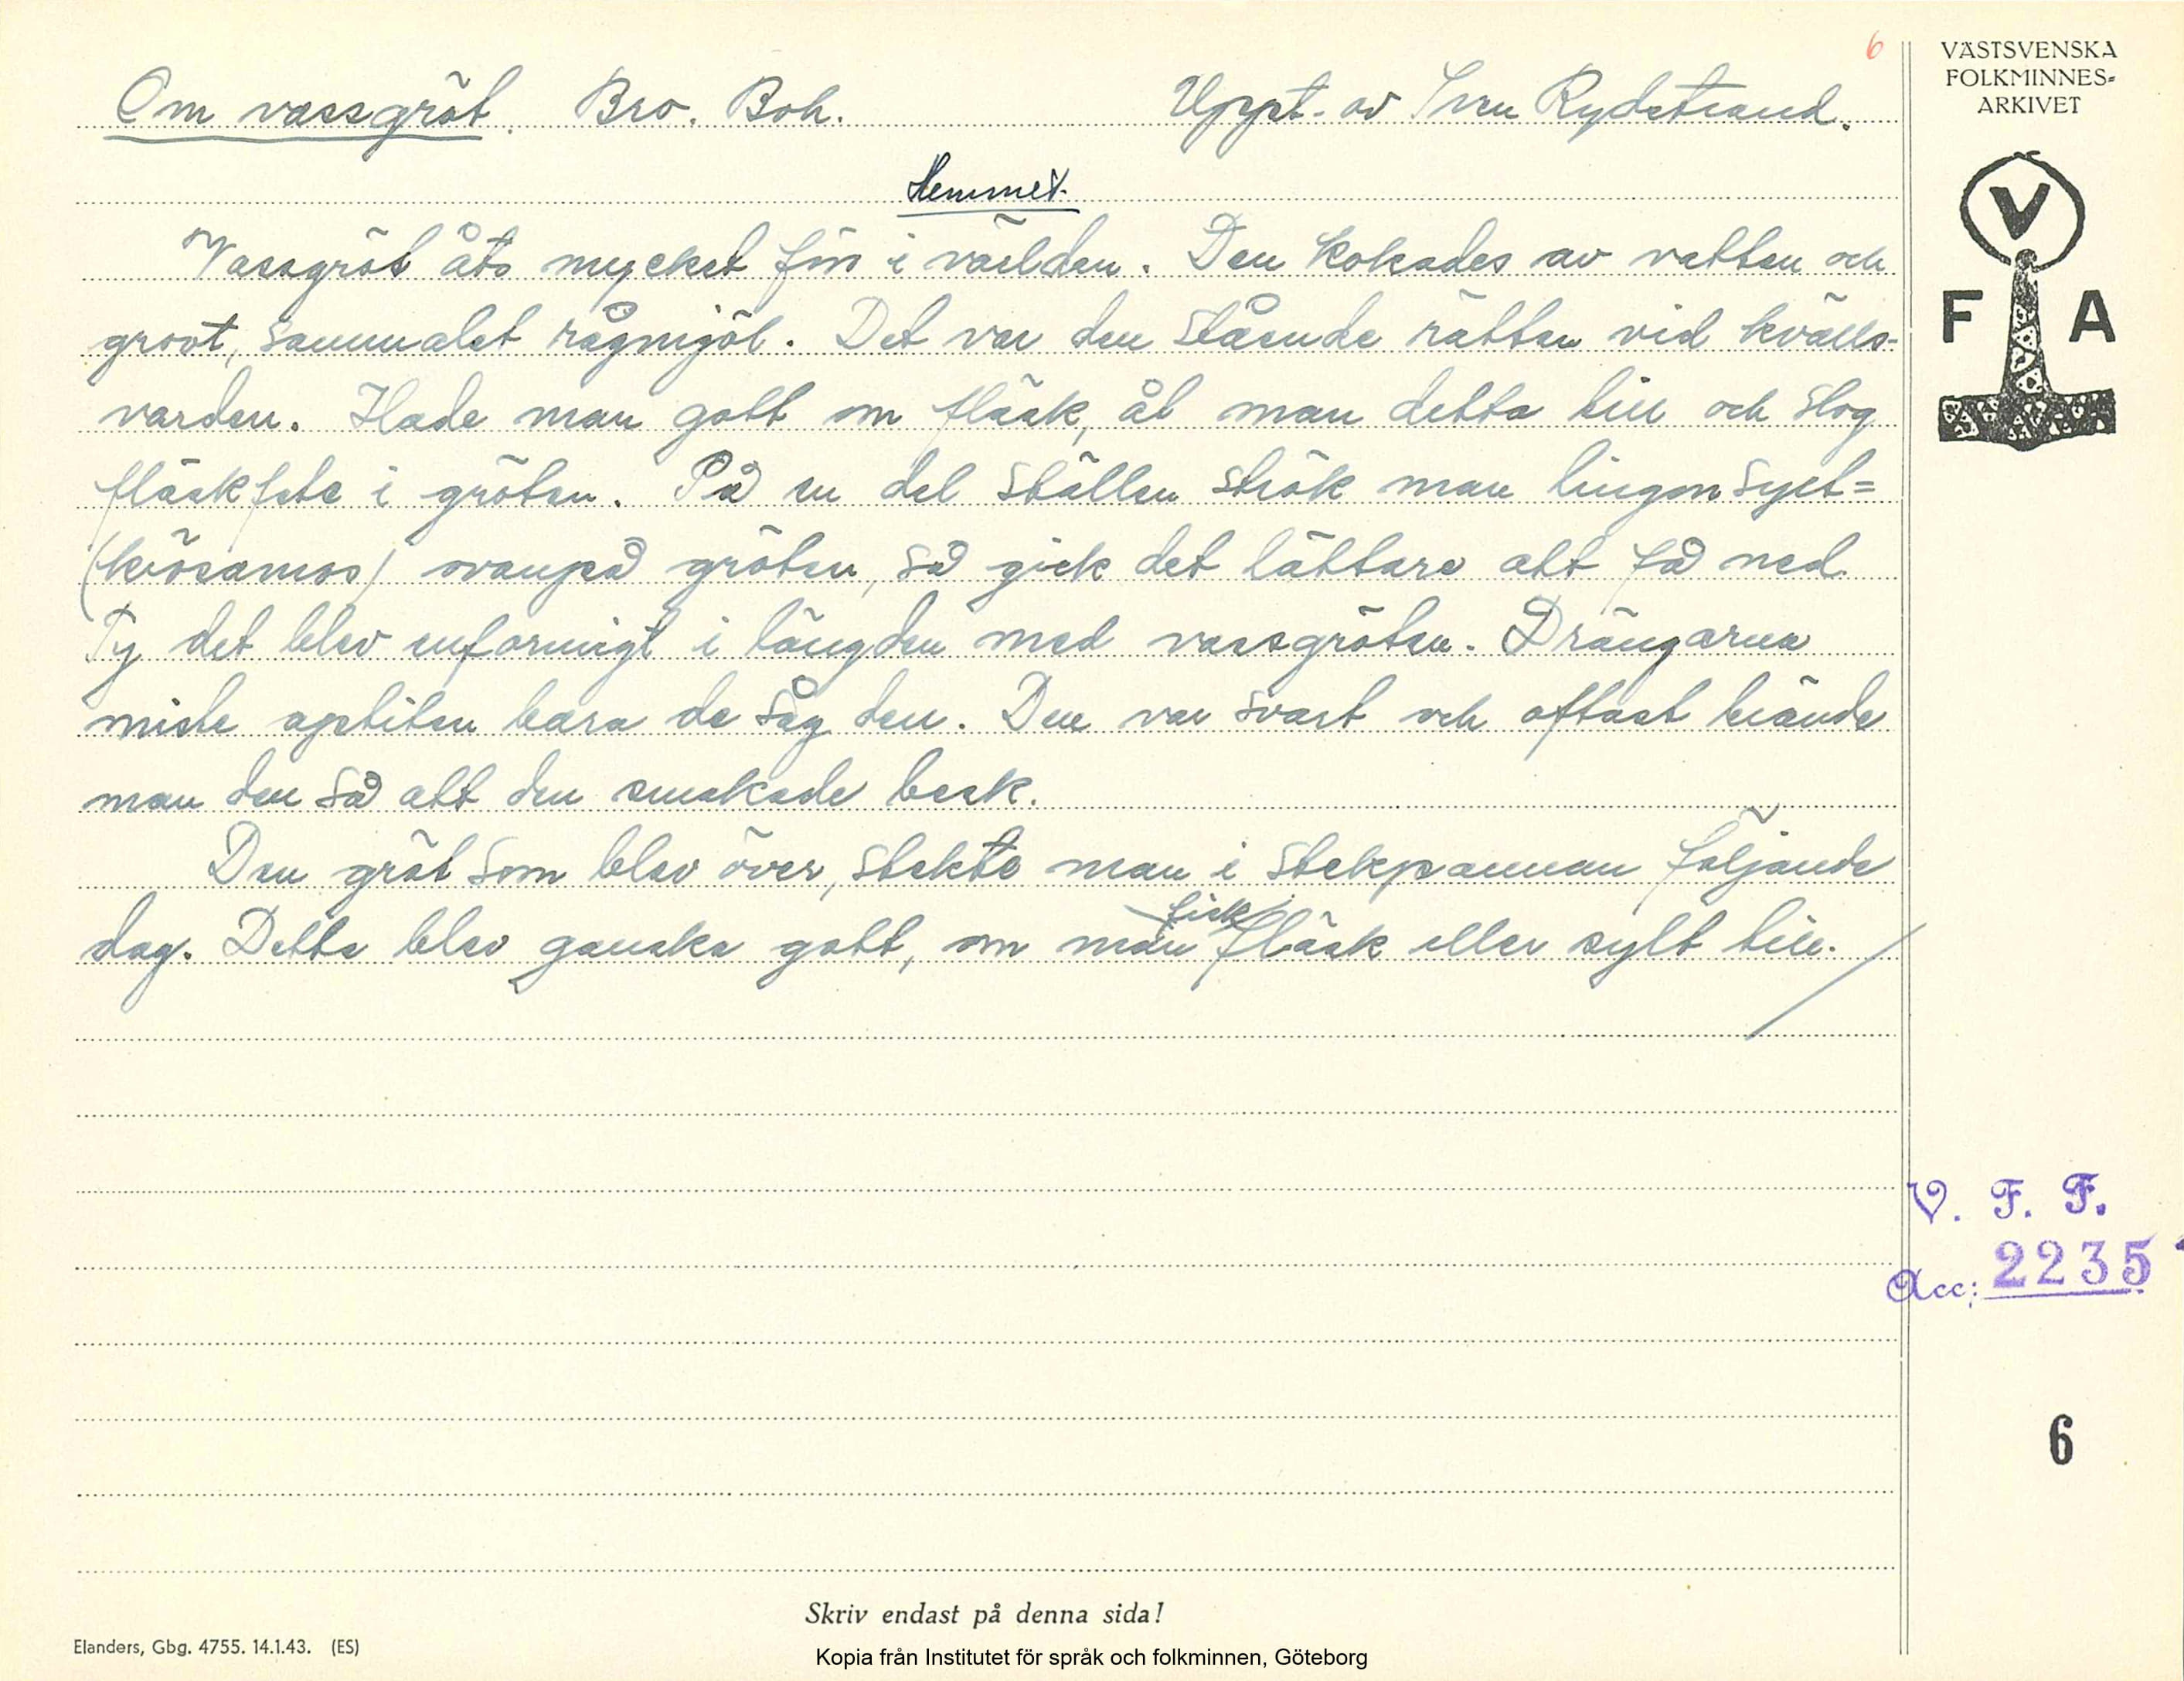 6
Om vassgröt. Bro. Boh. Uppt. av Sven Rydstrand.
Hemmet.
Vassgröt åts mycket förr i världen. Den kokades av vatten och
grovt, sammalet rågmjöl. Det var den stående rätten vid kvälls-
varden. Hade man gott om fläsk, åt man detta till och slog
fläskfete i gröten. På en del ställen strök man lingonsylt=
(krösamos) ovanpå gröten, så gick det lättare att få ned.
Ty det blev enformigt i längden med vassgröten. Drängarna
miste aptiten bara de såg den. Den var svart och oftast brände
man den så att den smakade besk.
Den gröt som blev över, stekte man i stekpannan följande
dag. Detta blev ganska gott, om man fick fläsk eller sylt till.
VÄSTSVENSKA
FOLKMINNES=
ARKIVET
V
F A
V. F. F.
Acc: 2235
6
Skriv endast på denna sida!
Elanders, Gbg. 4755. 14.1.43. (ES)
Kopia från Institutet för språk och folkminnen, Göteborg